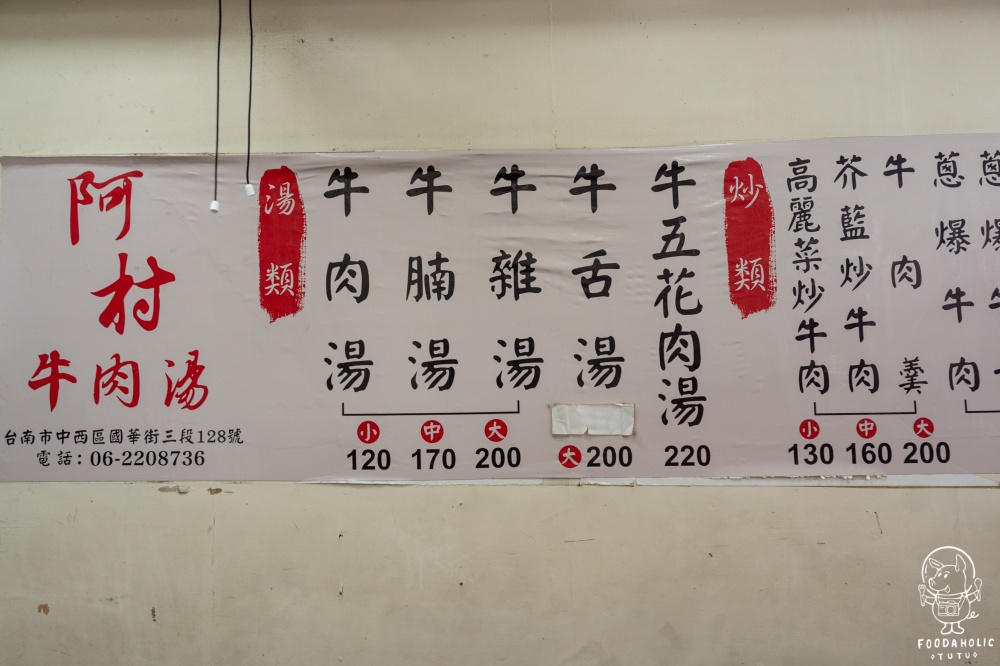 阿村
牛肉湯
台南市中西區國華街三段128號
電話：06-2208736
湯類
牛肉湯
牛腩湯
牛雜湯
牛舌湯
牛五花肉湯
小 中 大
120 170 200
大 200
220
炒類
高麗菜炒牛肉
芥藍炒牛肉
牛肉羹
蔥爆牛肉
蔥爆牛
小 中 大
130 160 200
FOODAHOLIC
TUTU